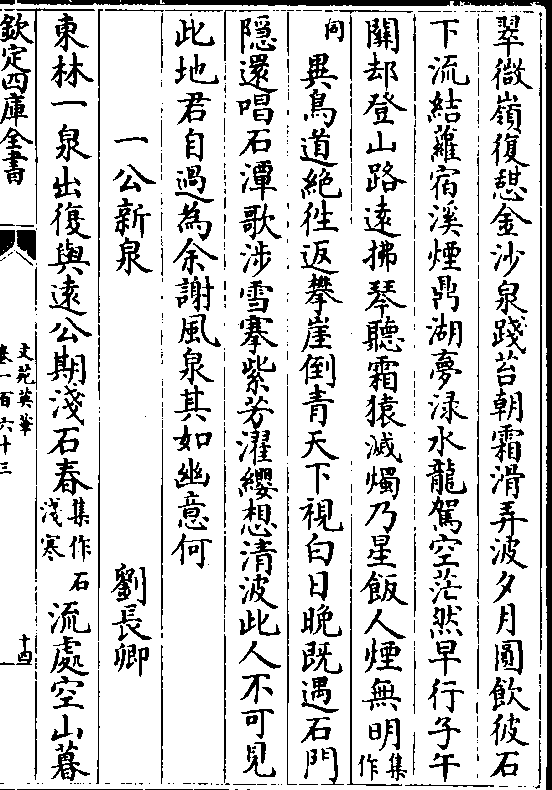 翠微嶺復憇金沙泉踐苔朝霜滑弄波夕月圓飲彼石
下流結蘿宿溪煙鼎湖夢淥水龍駕空茫然早行子午
關却登山路逺拂琴聽霜猿滅燭乃星飯人煙無明集作
同異鳥道絶徃返攀崖倒青天下視白日晚既過石門
隠還唱石潭歌涉雪搴紫芳濯纓想清波此人不可見
此地君自過為余謝風泉其如幽意何
一公新泉 劉長卿
東林一泉出復與逺公期淺石春集作石淺寒流處空山暮
欽定四庫全書
文苑英華
卷一百六十三
十四